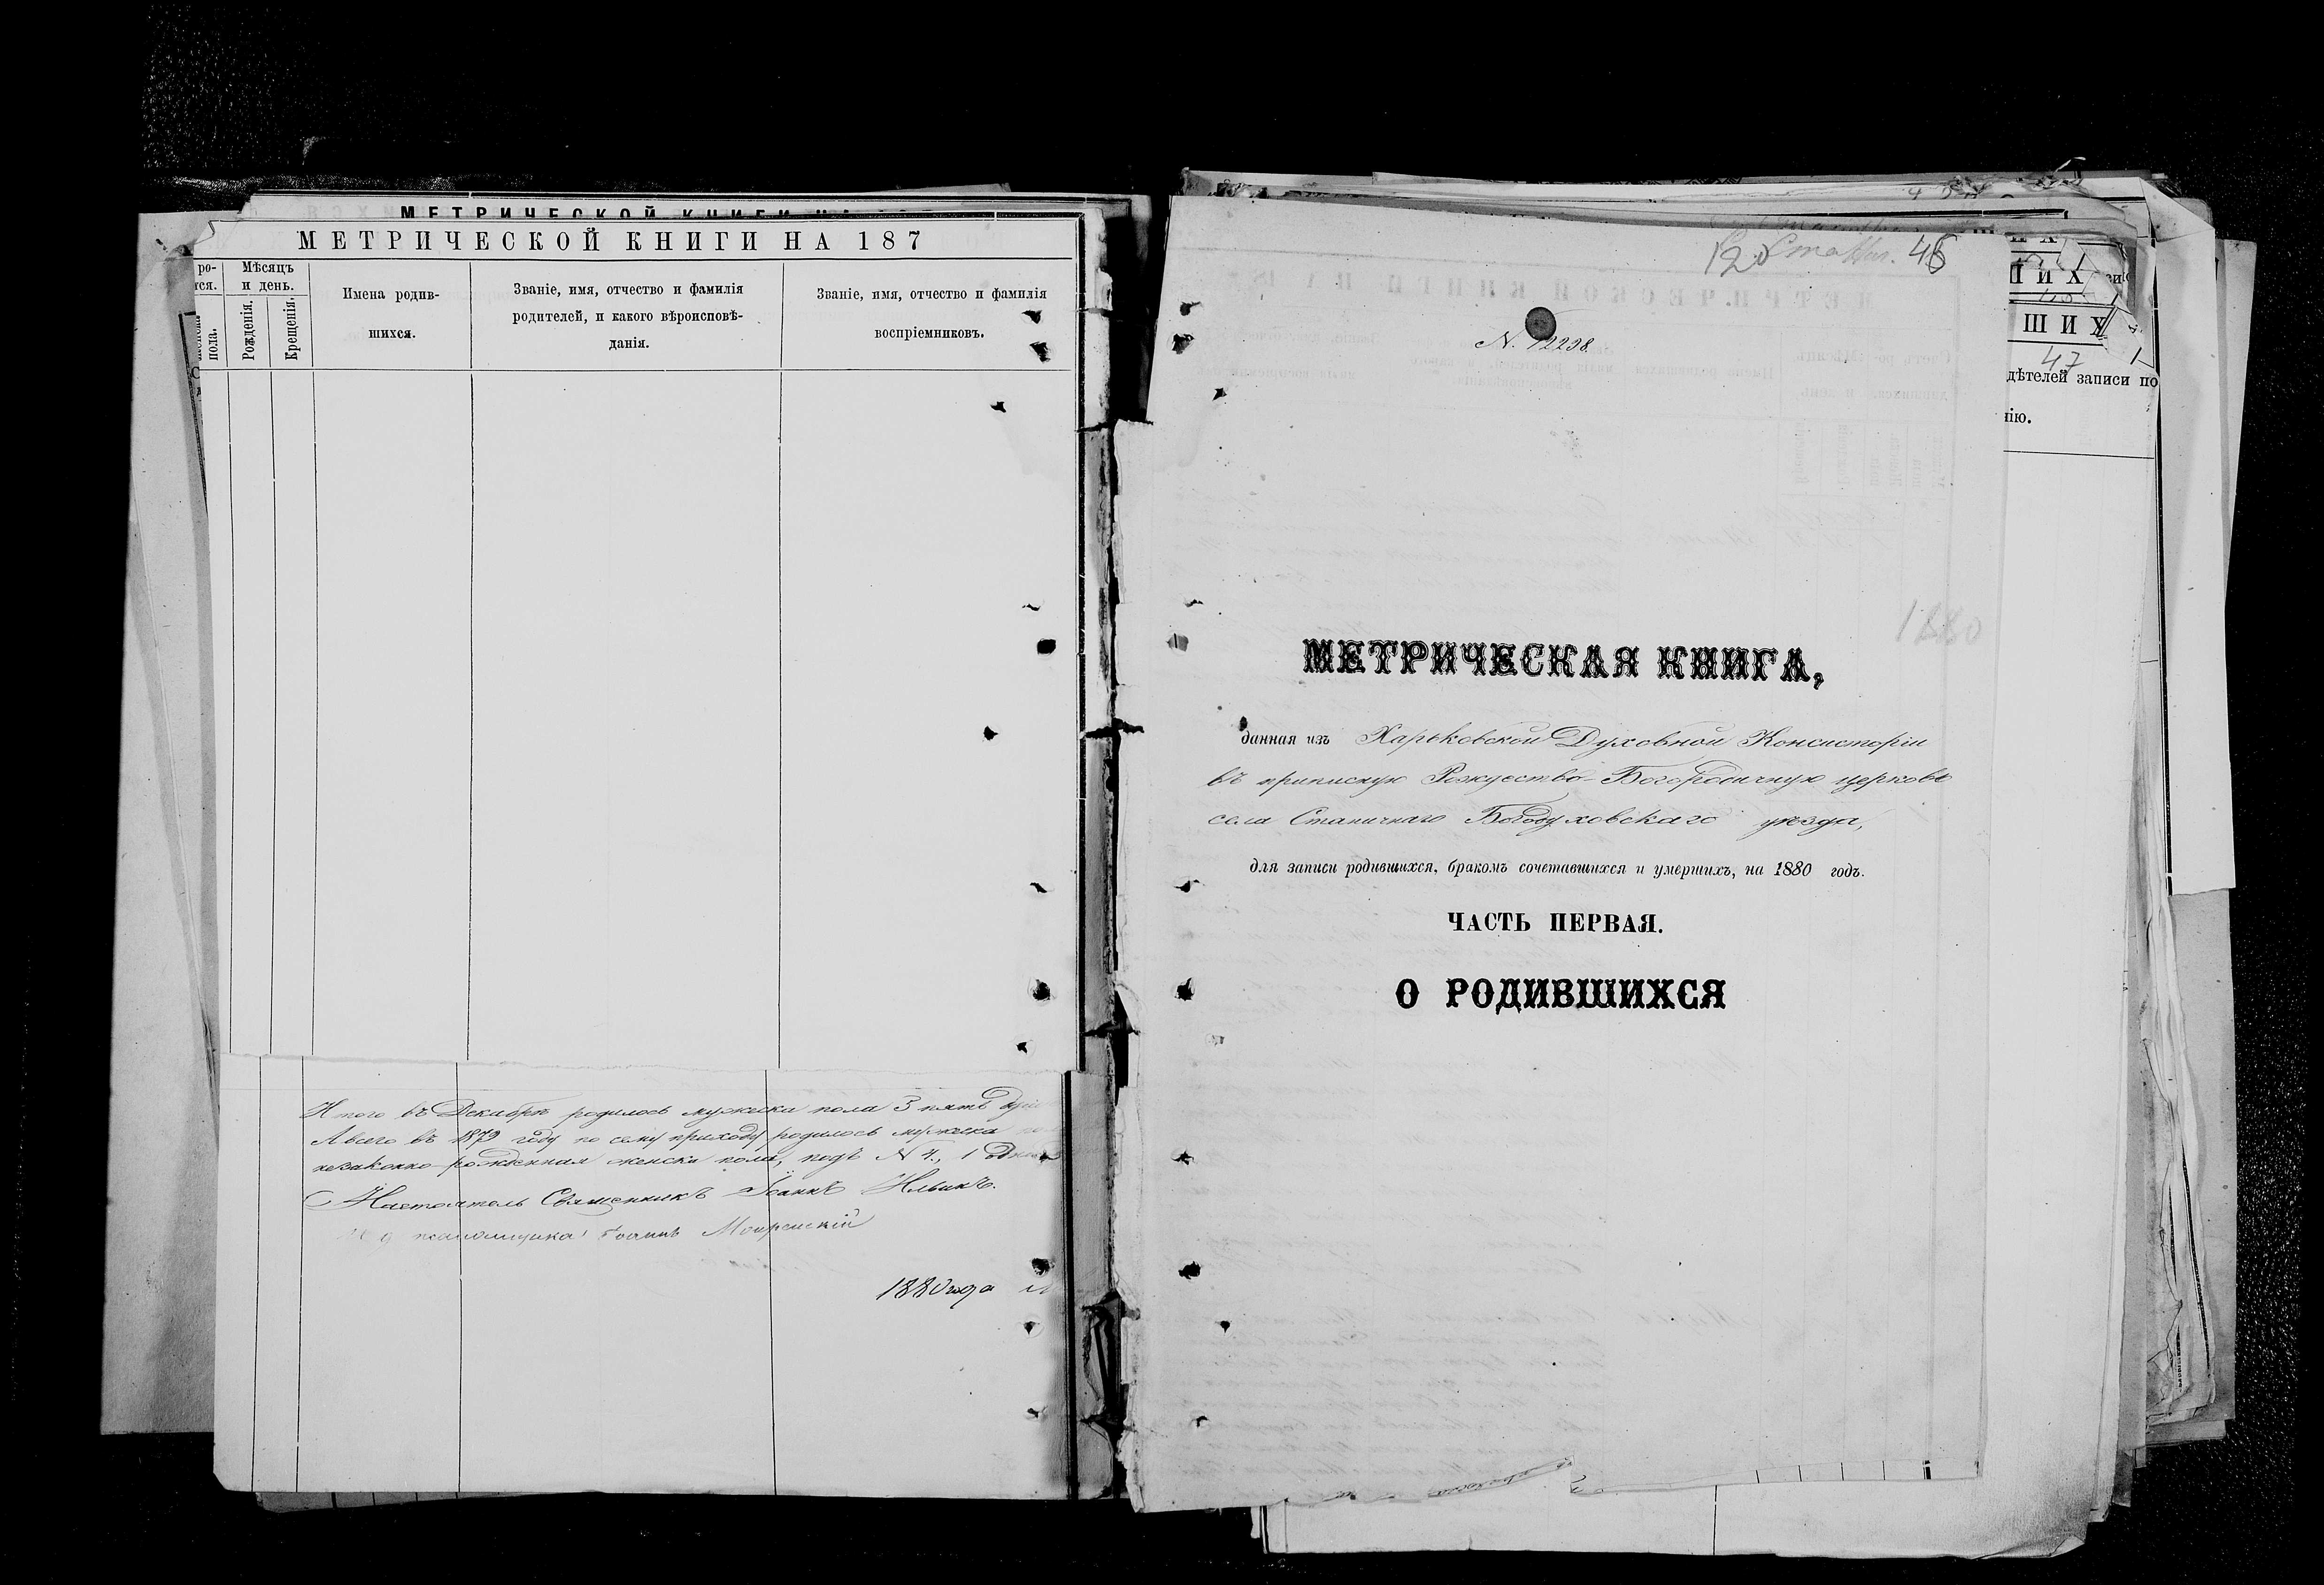 МЕТРИЧЕСКОЙ КНИГИ НА 187
ро-
тся.
пола.
Мѣсяцъ
и день.
Рожденія.
Крещенія.
Имена родив-
шихся.
Званіе, имя, отчество и фамилія
родителей, и какого вѣроисповѣ-
данія.
Званіе, имя, отчество и фамилія
воспріемниковъ.
Итого въ Декабрѣ родилось мужеска пола 5 пять
А всего въ 1879 году по сему приходу родилось мужеска
незаконно-рожденная женска пола, подъ N 4., 1
Настоятель Священникъ Іоаннъ Ильинъ.
псаломщика Іоаннъ
1880 года
120 46
N. 12238.
1880
МЕТРИЧЕСКАЯ КНИГА,
данная изъ Харьковской Духовной Консисторіи
въ приписную Рождество-Богородичную церковь
села Станичнаго Богодуховскаго уѣзда,
для записи родившихся, бракомъ сочетавшихся и умершихъ, на 1880 годъ.
ЧАСТЬ ПЕРВАЯ.
О РОДИВШИХСЯ
ШИХ
47
дѣтелей записи по
нію.